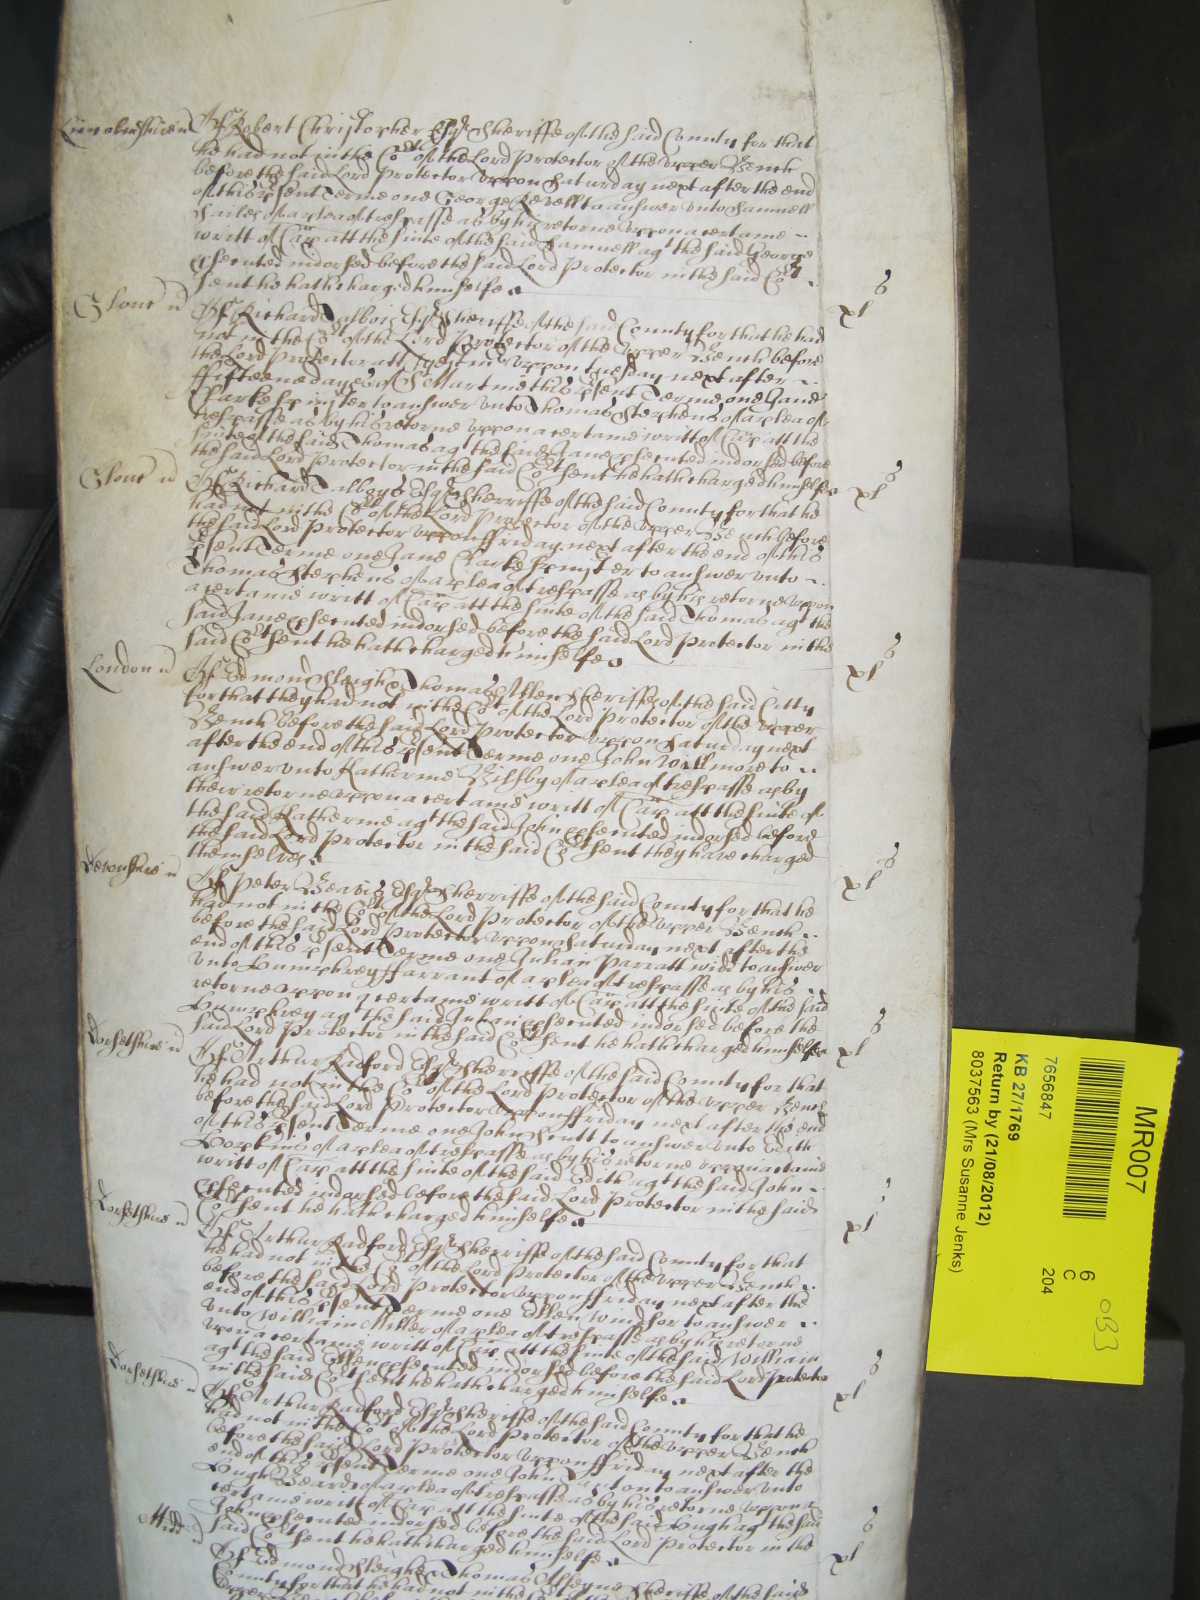 Lincolnshire Of Robert Christopher Esqr Sheriffe of the said County for that
he had not in the Cort of the Lord Protector of the upper Bench
before the said Lord Protector uppon Saturday next after the end
of this psent Terme one George to answer unto Samuell
of a plea of trespasse as by his retorne uppon a certaine
writt of Cap att the suite of the said Samuell agt the said George
psented indorsed before the said Lord Protector in the said Cort
sent he hath charged himselfe
xl s
Glouc Of Richard Talboys Esqr Sheriffe of the said County for that he had
not in the Cort of the Lord Protector of the upper Bench before
the Lord Protector att Westmr uppon tuesday next after
ffifteene dayes of St Martin this psent Terme one Jane
Clarke Spinster to answer unto Thomas Stephens of a plea of
trespasse as by his retorne uppon a certaine writt of Cap att the
suite of the said Thomas agt the said Jane psented indorsed before
the said Lord Protector in the said Cort sent he hath charged himselfe
xl s
Glouc Of Richard Talboys Esqr Sherriffe of the said County for that he
had not in the Cort of the Lord Protector of the upper Bench before
the said Lord Protector uppon ffriday next after the end of this
psent Terme one Jane Clarke Spinster to answer unto
Thomas Stephens of a plea of trespasse as by his retorne uppon
a certaine writt of Cap att the suite of the said Thomas agt the
said Jane psented indorsed before the said Lord Protector in the
said Cort sent he hath charged himselfe
xl s
London Of Edmond Sleigh & Thomas Allen Sheriffes of the said Citty
for that they had not in the Cort of the Lord Protector of the upper
Bench before the said Lord Protector uppon Saturday next
after the end of this psent Terme one John Willmore to
answer unto Katherine of a plea of trespasse as by
their retorne uppon a certaine writt of Cap att the suite of
the said Katherine agt the said John psented indorsed before
the said Lord Protector in the said Cort sent they have charged
themselves
xl s
Devonshire Of Peter Esqr Sherriffe of the said County for that he
had not in the Cort of the Lord Protector of the upper Bench
before the said Lord Protector uppon Saturday next after the
end of this psent Terme one Julian Parratt wid to answer
unto Humphrey ffarrant of a plea of trespasse as by his
retorne uppon a certaine writt of Cap att the suite of the said
Humphrey agt the said Julian psented indorsed before the
said Lord Protector in the said Cort sent he hath charged himselfe
xl s
Dorsetshire Of Arthur Radford Esqr Sherriffe of the said County for that
he had not in the Cort of the Lord Protector of the upper Bench
before the said Lord Protector uppon ffriday next after the end
of this psent Terme one John to answer unto Edith
Hopkins of a plea of trespasse as by his retorne uppon a certaine
writt of Cap att the suite of the said Edith agt the said John
psented indorsed before the said Lord Protector in the said
Cort sent he hath charged himselfe
xl s
Dorsetshire Of Arthur Radford Esqr Sherriffe of the said County for that
he had not in the Cort of the Lord Protector of the upper Bench
before the said Lord Protector uppon ffriday next after the
end of this psent Terme one Ellen Windsor to answer
unto William Miller of a plea of trespasse as by his retorne
uppon a certaine writt of Cap att the suite of the said William
agt the said Ellen psented indorsed before the said Lord Protector
in the said Cort sent he hath charged himselfe
xl s
Dorsetshire Of Arthur Radford Esqr Sheriffe of the said County for that he
had not in the Cort of the Lord Protector of the upper Bench
before the said Lord Protector uppon ffriday next after the
end of this psent Terme one John to answer unto
Hugh of a plea of trespasse as by his retorne uppon a
certaine writt of Cap att the suite of the said Hugh agt the said
John psented indorsed before the said Lord Protector in the
said Cort sent he hath charged himselfe
xl s
Midd Of Edmond Sleigh & Thomas Sheriffe of the said
County for that he had not in the Cort of the Lord
MR007
7656847
KB 27/1769
Return by (21/08/2012)
8037563 (Mrs Susanne Jenks)
6
C
204